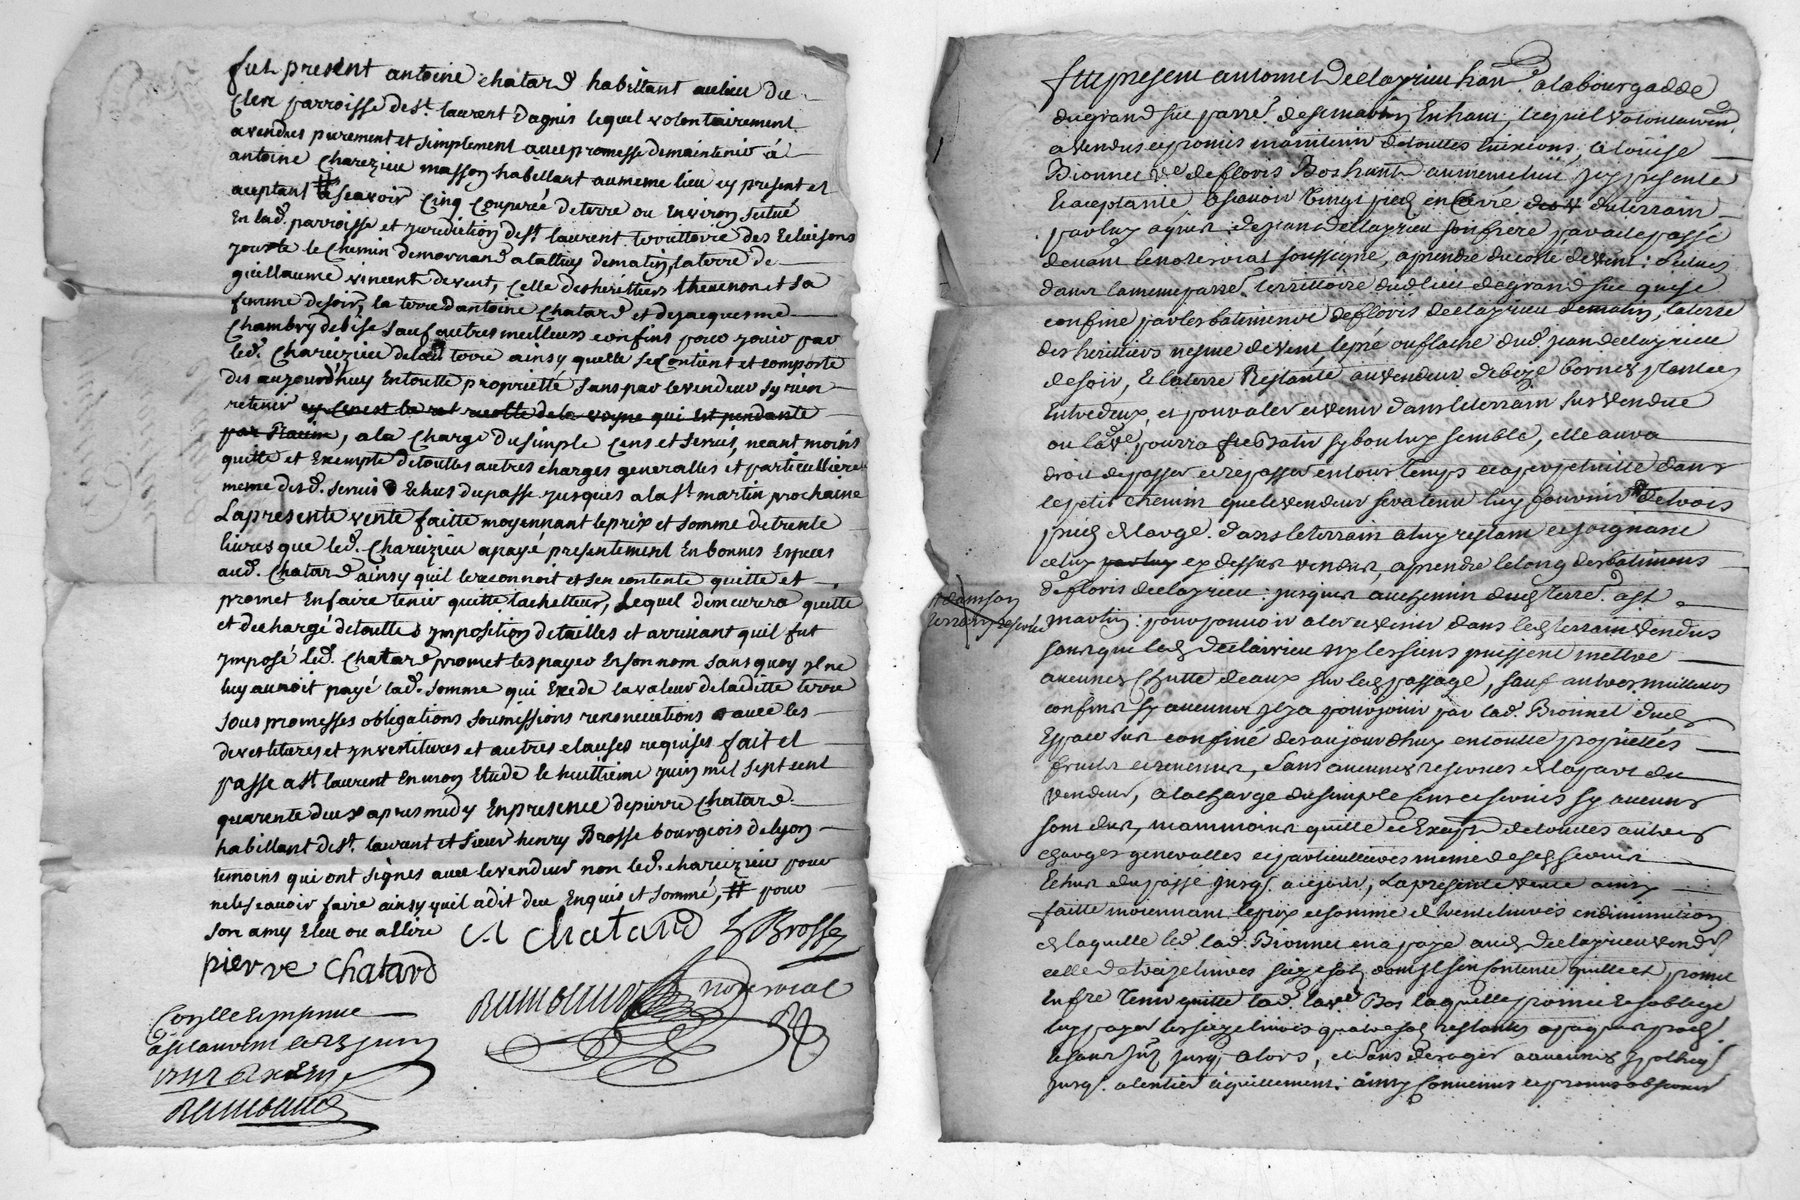 fut present antoine chatard habillant aulieu du
Clerc parroisse de st. laurent Dagnis lequel volontairement
a vendues purement et simplement avec promesse de maintenir à
antoine Chareizieu masson habillant au meme lieu cy present et
aceptant # scavoir Cinq Couperée de terre ou Environ situé
En lad. parroisse et jurediction de st. laurent territtoire des
jouxte le chemin demornand a lattuy de matin, la terre de
guillaume vincent de vent, celle des herittiers thevenon et sa
femme de soir, la terre d'antoine Chatard et de jacquesme
Chambry de bise sauf autres meilleurs confins pour jouir par
led. Chareizieu de lad terre ainsy, quelle se Contient et comporte
des aujourd'huy En toutte proprietté sans par le vendeur sy rien
retenir cy Cenest la recolte de la qui Est pendante
par Racine, a la Charge du simple Cens et servis, neant moins
quitte et Exempte de touttes autres charges generalles et particullieres
meme desd. servis Echus du passe jusques a la st. martin prochaine
La presente vente faitte moyennant le prix et somme de trente
livres que led. Chareizieu a payé presentement En bonnes Especes
aud. Chatard ainsy quil le reconnoit et sen contente quitte et
promet En faire tenir quitte lachetteur, Lequel demeurera quitte
et dechargé de touttes jmposition de tailles et arrivant quil fut
jmposé led. Chatard promet les payer En son nom sans quoy jl ne
luy auroit payé lad. somme qui Exede la valeur de laditte terre
sous promesses obligations soumissions renonciations avec les
devestitures et jnvestitures et autres clauses requises fait et
passe a st. laurent En mon Etude le huittieme juin mil sept cent
quarente deux apres medy En presence de pierre Chatard
habillant de st. laurent et sieur henry Brosse bourgeois de lyon
temoins qui ont signés avec le vendeur non led. chareizieu pour
ne le scavoir faire ainsy quil a dit de ce Enquis et sommé, # pour
son amy Eleu ou a Elire
A Chatard h Brosse
pierre Chatard
notre royal
a st laurent le 23 juin
fut present antoine Delayrieu han. a la bourgadde
du grand suc parre. de st martin En haut, lequel volontairem.
a vendus et promis maintenir de touttes, a loüise
Bionnet ve. de floris Bos hante au meme lieu, jcy presente
Et aceptante Ascavoir Vingt pied en Carré du terrain
par luy aquis de jean Delayrieu son frere par acte passé
devant le note. royal soussigné, a prendre du costé de vent, scitués
dans la meme parre. territtoire dud lieu du grand suc qui se
confine par les batiments de floris delayrieu de matin, la terre
des herittiers de vent le pré ou flache dud. jean delayrieu
de soir, Et la terre Restante au vendeur de bize bornes plantées
Entre deux, et pour aler et venir dans le terrain sus vendue
ou lad ve. pourra fre Batir sy bon luy semble, elle aura
droit de passer et repasser en tous temps et a perpetuitté dans
le petit chemin que le vendeur sera tenu luy fournir # de trois
pieds de large dans le terrain a luy restant et joignant
celuy par luy cy dessus vendus, a prendre le long des batiments
de floris delayrieu jusques au chemin dud
martin pour pouvoir aler et venir dans led terrain vendus
sans que led delairieu ny les siens puissent mettre
aucunes Chutte deaux sur led passage, sauf autres meilleurs
confins sy aucuns jl y a pour jouir par lad. Bionnet dud
Espace sus confiné des aujourdhuy en toutte proprietés
fruits et revenus, sans aucunes reserves de la part du
vendeur, a la charge du simple Cens et servis sy aucuns
sont dus, neammoins quitte et Exempt de touttes autres
charges generalles et particullieres meme desd servis
Echus du passé jusq. a ce jour, La presente vente ainsy
faitte moiennant le prix et somme de trente livres en diminution
de laquelle led. lad. Bionnet en a payé aud delayrieu vendr
celle de treize livres seize sols dont jl sen contente quitte et promet
En fre tenir quitte lad. lad ve Bos laquelle promet et soblige
luy payer les seize livres quatre sols restants